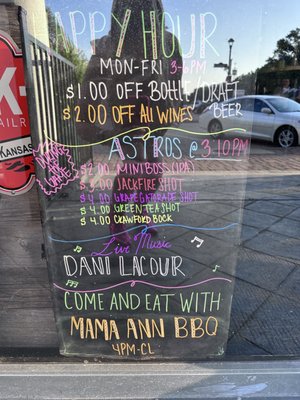 HAPPY HOUR
MON-FRI 3-6PM
$1.00 OFF BOTTLE/DRAFT
BEER
$2.00 OFF All WINES
ASTROS @ 3:10PM
$2.00 MINIBOSS (IPA)
$3.00 JACKFIRE SHOT
$4.00 GRAPE GATORADE SHOT
$4.00 GREEN TEA SHOT
$4.00 CRAWFORD BOCK
Live Music
DANI LACOUR
COME AND EAT WITH
MAMA ANN BBQ
4PM-CL
K
RAILR
Kansas